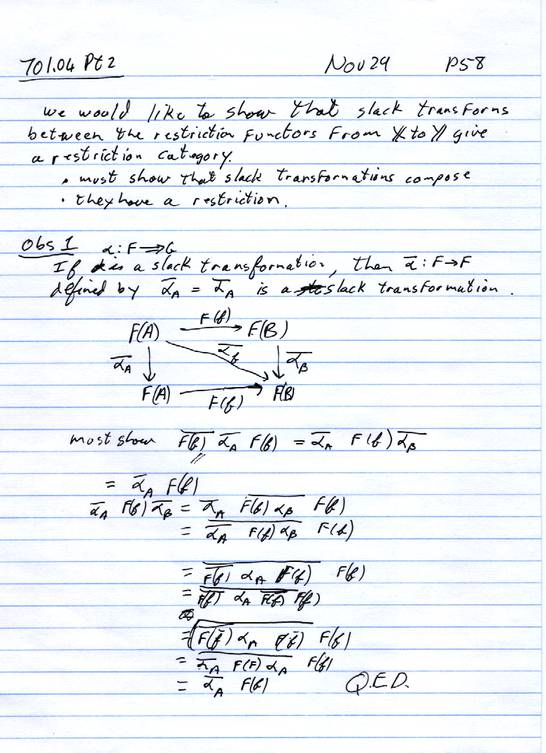 701.04 Pt 2 Nov 29 PS8
we would like to show that slack transforms
between the restriction functors from X to Y give
a restriction category.
• must show that slack transformations compose
• they have a restriction.
Obs 1 α: F ⇒ G
If α is a slack transformation, then ᾱ: F → F
defined by ᾱ_A = \overline{α_A} is a slack transformation.
F(A) F(f) F(B)
\overline{α_A} \overline{α_f} \overline{α_B}
F(A) F(f) F(B)
must show \overline{F(f)} \overline{α_A} F(f) = \overline{α_A} F(f) \overline{α_B}
= \overline{α_A} F(f)
\overline{α_A} F(f) \overline{α_B} = \overline{α_A} \overline{F(f) α_B} F(f)
= \overline{\overline{α_A} F(f) α_B} F(f)
= \overline{\overline{F(f)} α_A F(f)} F(f)
= \overline{\overline{F(f)} α_A \overline{F(f)}} F(f)
= \overline{\overline{F(f)} α_A F(f)} F(f)
= \overline{\overline{α_A} F(f) α_A} F(f)
= \overline{α_A} F(f) Q.E.D.